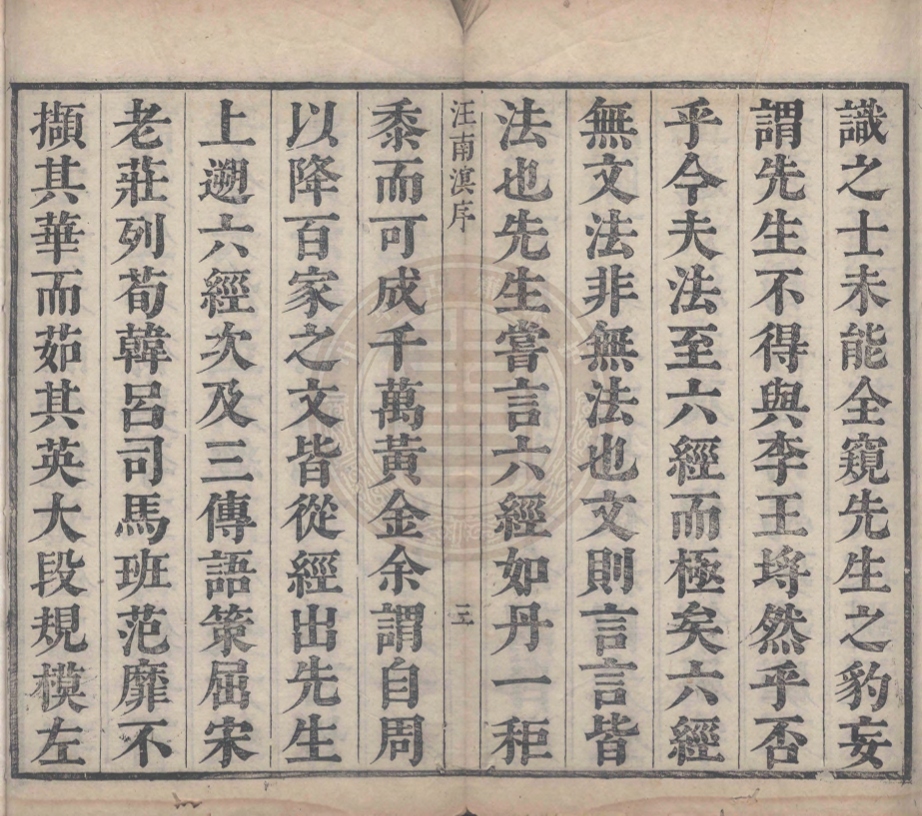 識之士未能全窺先生之豹妄
謂先生不得與李王埒然乎否
乎今夫法至六經而極矣六經
無文法非無法也文則言言皆
法也先生嘗言六經如丹一秬
汪南溟序 三
黍而可成千萬黃金余謂自周
以降百家之文皆從經出先生
上遡六經次及三傳語策屈宋
老莊列荀韓呂司馬班范靡不
擷其華而茹其英大段規模左